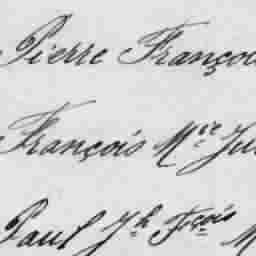 Pierre François
François Mie Jul
Paul Jh Fçois M